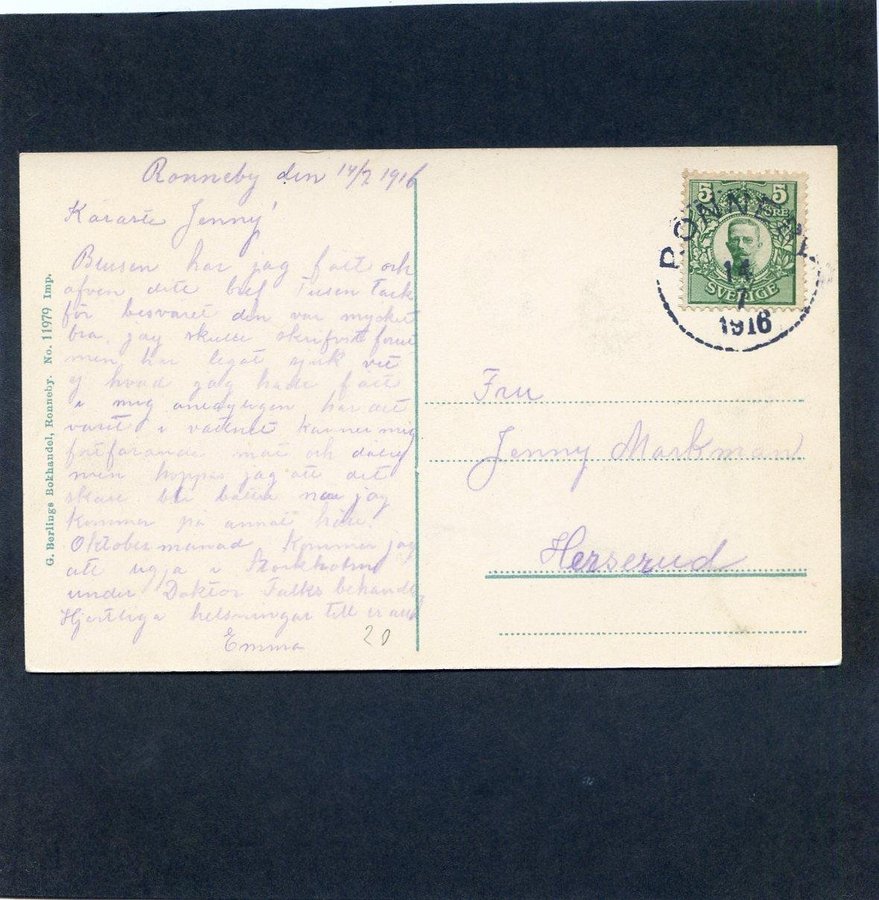 Ronneby den 14/7 1916
Käraste Jenny!
Blusen har jag fått och
äfven ditt bref Tusen tack
för besväret den var mycket
bra, jag skulle skrifvit förut
men har legat sjuk vet
ej hvad jag hade fått
i mig har det
varit i vattnet känner mig
fortfarande matt och dålig
men hoppas jag att det
skall bli bättre när jag
kommer på annat håll.
Oktober månad Kommer jag
att ligga i Stockholm
under Doktor Falks behandl.
Hjertliga helsningar till er alla
Emma
20
G. Berlings Bokhandel, Ronneby. No. 11979 Imp.
5 5
ÖRE
SVERIGE
RONNEBY
14
7
1916
Fru
Jenny Markman
Herserud